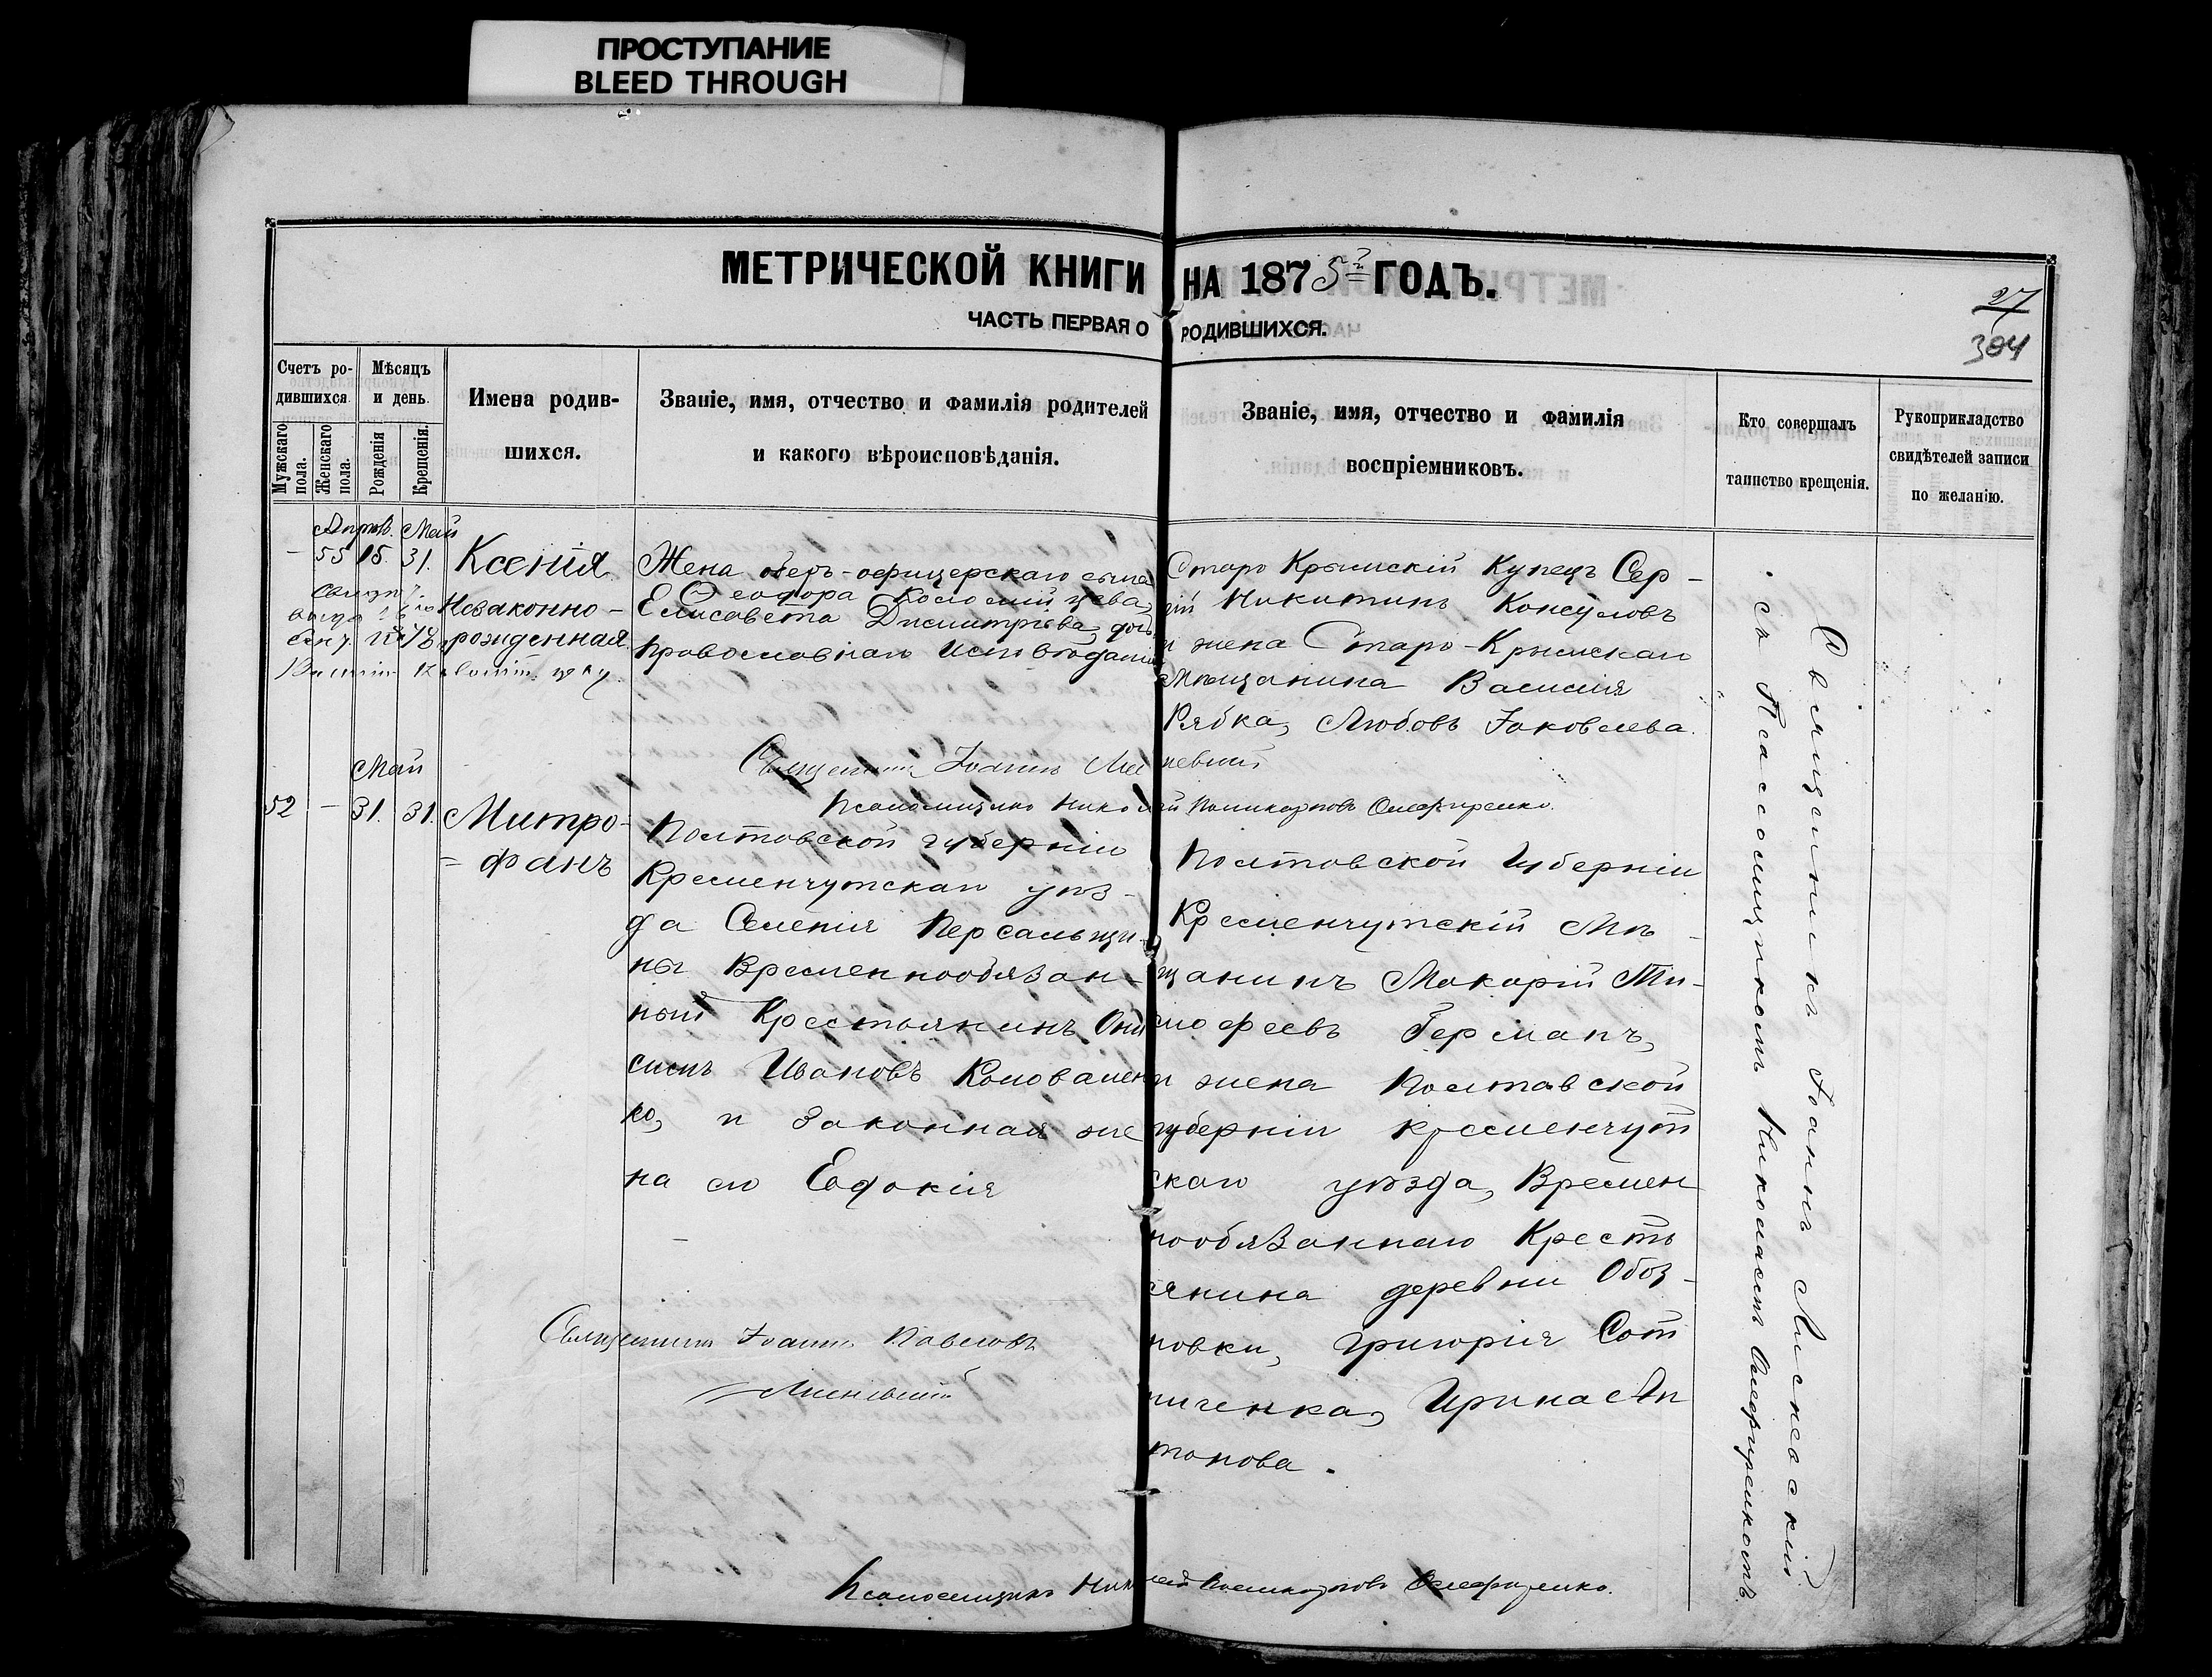 ПРОСТУПАНИЕ
BLEED THROUGH
МЕТРИЧЕСКОЙ КНИГИ НА 1875й ГОДЪ.
ЧАСТЬ ПЕРВАЯ О РОДИВШИХСЯ.
27
304
Счетъ ро-
дившихся.
Мужскаго пола.
Женскаго пола.
Мѣсяцъ
и день.
Рожденія
Крещенія.
Имена родив-
шихся.
Званіе, имя, отчество и фамилія родителей
и какого вѣроисповѣданія.
Званіе, имя, отчество и фамилія
воспріемниковъ.
Кто совершалъ
таинство крещенія.
Рукоприкладство
свидѣтелей записи
по желанію.
Апрѣль Май
- 55 15. 31.
Ксенія
Незаконно-
рожденная
Жена оберъ-офицерскаго сына
Ѳеодора
Елисавета Дмитріева,
православнаго исповѣданія
Старо Крымскій Купецъ Сер-
гій Никитинъ Консуловъ
и жена Старо-Крымскаго
Мѣщанина Василія
Рябка, Любовь Іаковлева.
Священникъ Іоаннъ
Псаломщикъ Николай Поликарповъ Олефиренко.
Май
52 - 31. 31.
Митро-
фанъ
Полтавской губерніи
Кременчугскаго уѣз-
да Селенія
Временнообязан-
ный Крестьянинъ Они
симъ Ивановъ Коновален
ко, и законная же
на его Евдокія
Полтавской Губерніи
Кременчугскій Мѣ-
щанинъ Макарій Ти-
мофеевъ Германъ,
и жена Полтавской
губерніи Кременчуг
скаго уѣзда, Времен
нообязаннаго Кресть
янина деревни Обоз-
новки, Григорія Сот
ниченка, Ирина Ан
тонова.
Священникъ Іоаннъ Павловъ
Псаломщикъ Николай Поликарповъ Олефиренко.
Священникъ Іоаннъ
съ Псаломщикомъ Николаемъ Олефиренкомъ